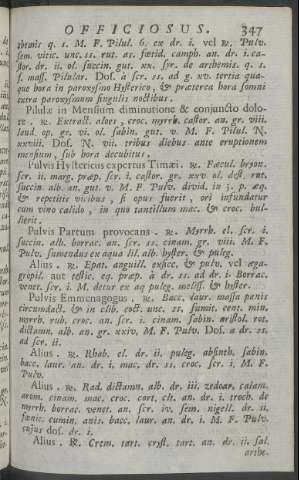 OFFICIOSUS. 347
themis q. s. M. F. Pilul. 6. ex dr. i. vel ℞. Pulv.
sem. vitic. unc. ss. rut. as. fœtid. camph. an. dr. i. ca-
stor. dr. ii. ol. succin. gut. xx. syr. de arthemis. q. s.
f. mass. Pilular. Dos. a scr. ss. ad g. xv. tertia qua-
que hora in paroxysmo Hysterico, & præterea hora somni
extra paroxysmum singulis noctibus.
Pilulæ in Mensium diminutione & conjuncto dolo-
re. ℞. Extract. aloes, croc. myrrh. castor. an. gr. viii.
laud. op. gr. vi. ol. sabin. gut. v. M. F. Pilul. N.
xxviii. Dos. N. vii. tribus diebus ante eruptionem
mensium, sub hora decubitus.
Pulvis Hystericus expertus Timæi. ℞. Fæcul. bryon.
scr. ii. marg. præp. scr. i. castor. gr. xxv ol. dest. rut.
succin. alb. an. gut. v. M. F. Pulv. divid. in 3. p. æq.
& repetitis vicibus, si opus fuerit, ori infundatur
cum vino calido, in quo tantillum mac. & croc. bul-
lierit.
Pulvis Partum provocans. ℞. Myrrh. el. scr. i.
succin. alb. borrac. an. scr. ss. cinam. gr. viii. M. F.
Pulv. sumendus ex aqua lil. alb. hyster. & puleg.
Alius. ℞. Epat. anguill. exsicc. & pulv. vel æga-
gropil. aut testic. eq. præp. a dr. ss. ad dr. i. Borrac.
venet. scr. i. M. detur ex aq puleg. meliss. & hyster.
Pulvis Emmenagogus. ℞. Bacc. laur. massa panis
circumdact. & in clib. coct. unc. ss. sumit. cent. min.
myrrh. rub. croc. an. scr. i. cinam. sabin. aristol. rot.
dictamn. alb. an. gr. xxiv. M. F. Pulv. Dos. a dr. ss.
ad scr. ii.
Alius. ℞. Rhab. el. dr. ii. puleg. absinth. sabin.
bacc. laur. an. dr. i. mac. dr. ss. croc. scr. i. M. F.
Pulv.
Alius. ℞. Rad. dictamn. alb. dr. iii. zedoar. calam.
arom. cinam. mac. croc. cort. cit. an. dr. i. troch. de
myrrh. borrac. venet. an. scr. iv. sem. nigell. dr. ii.
fœnic. cumin. anis. bacc. laur. an. dr. i. M. F. Pulv.
cujus dos. dr. i.
Alius. ℞. Crem. tart. cryst. tart. an. dr. ii. sal.
arthe-